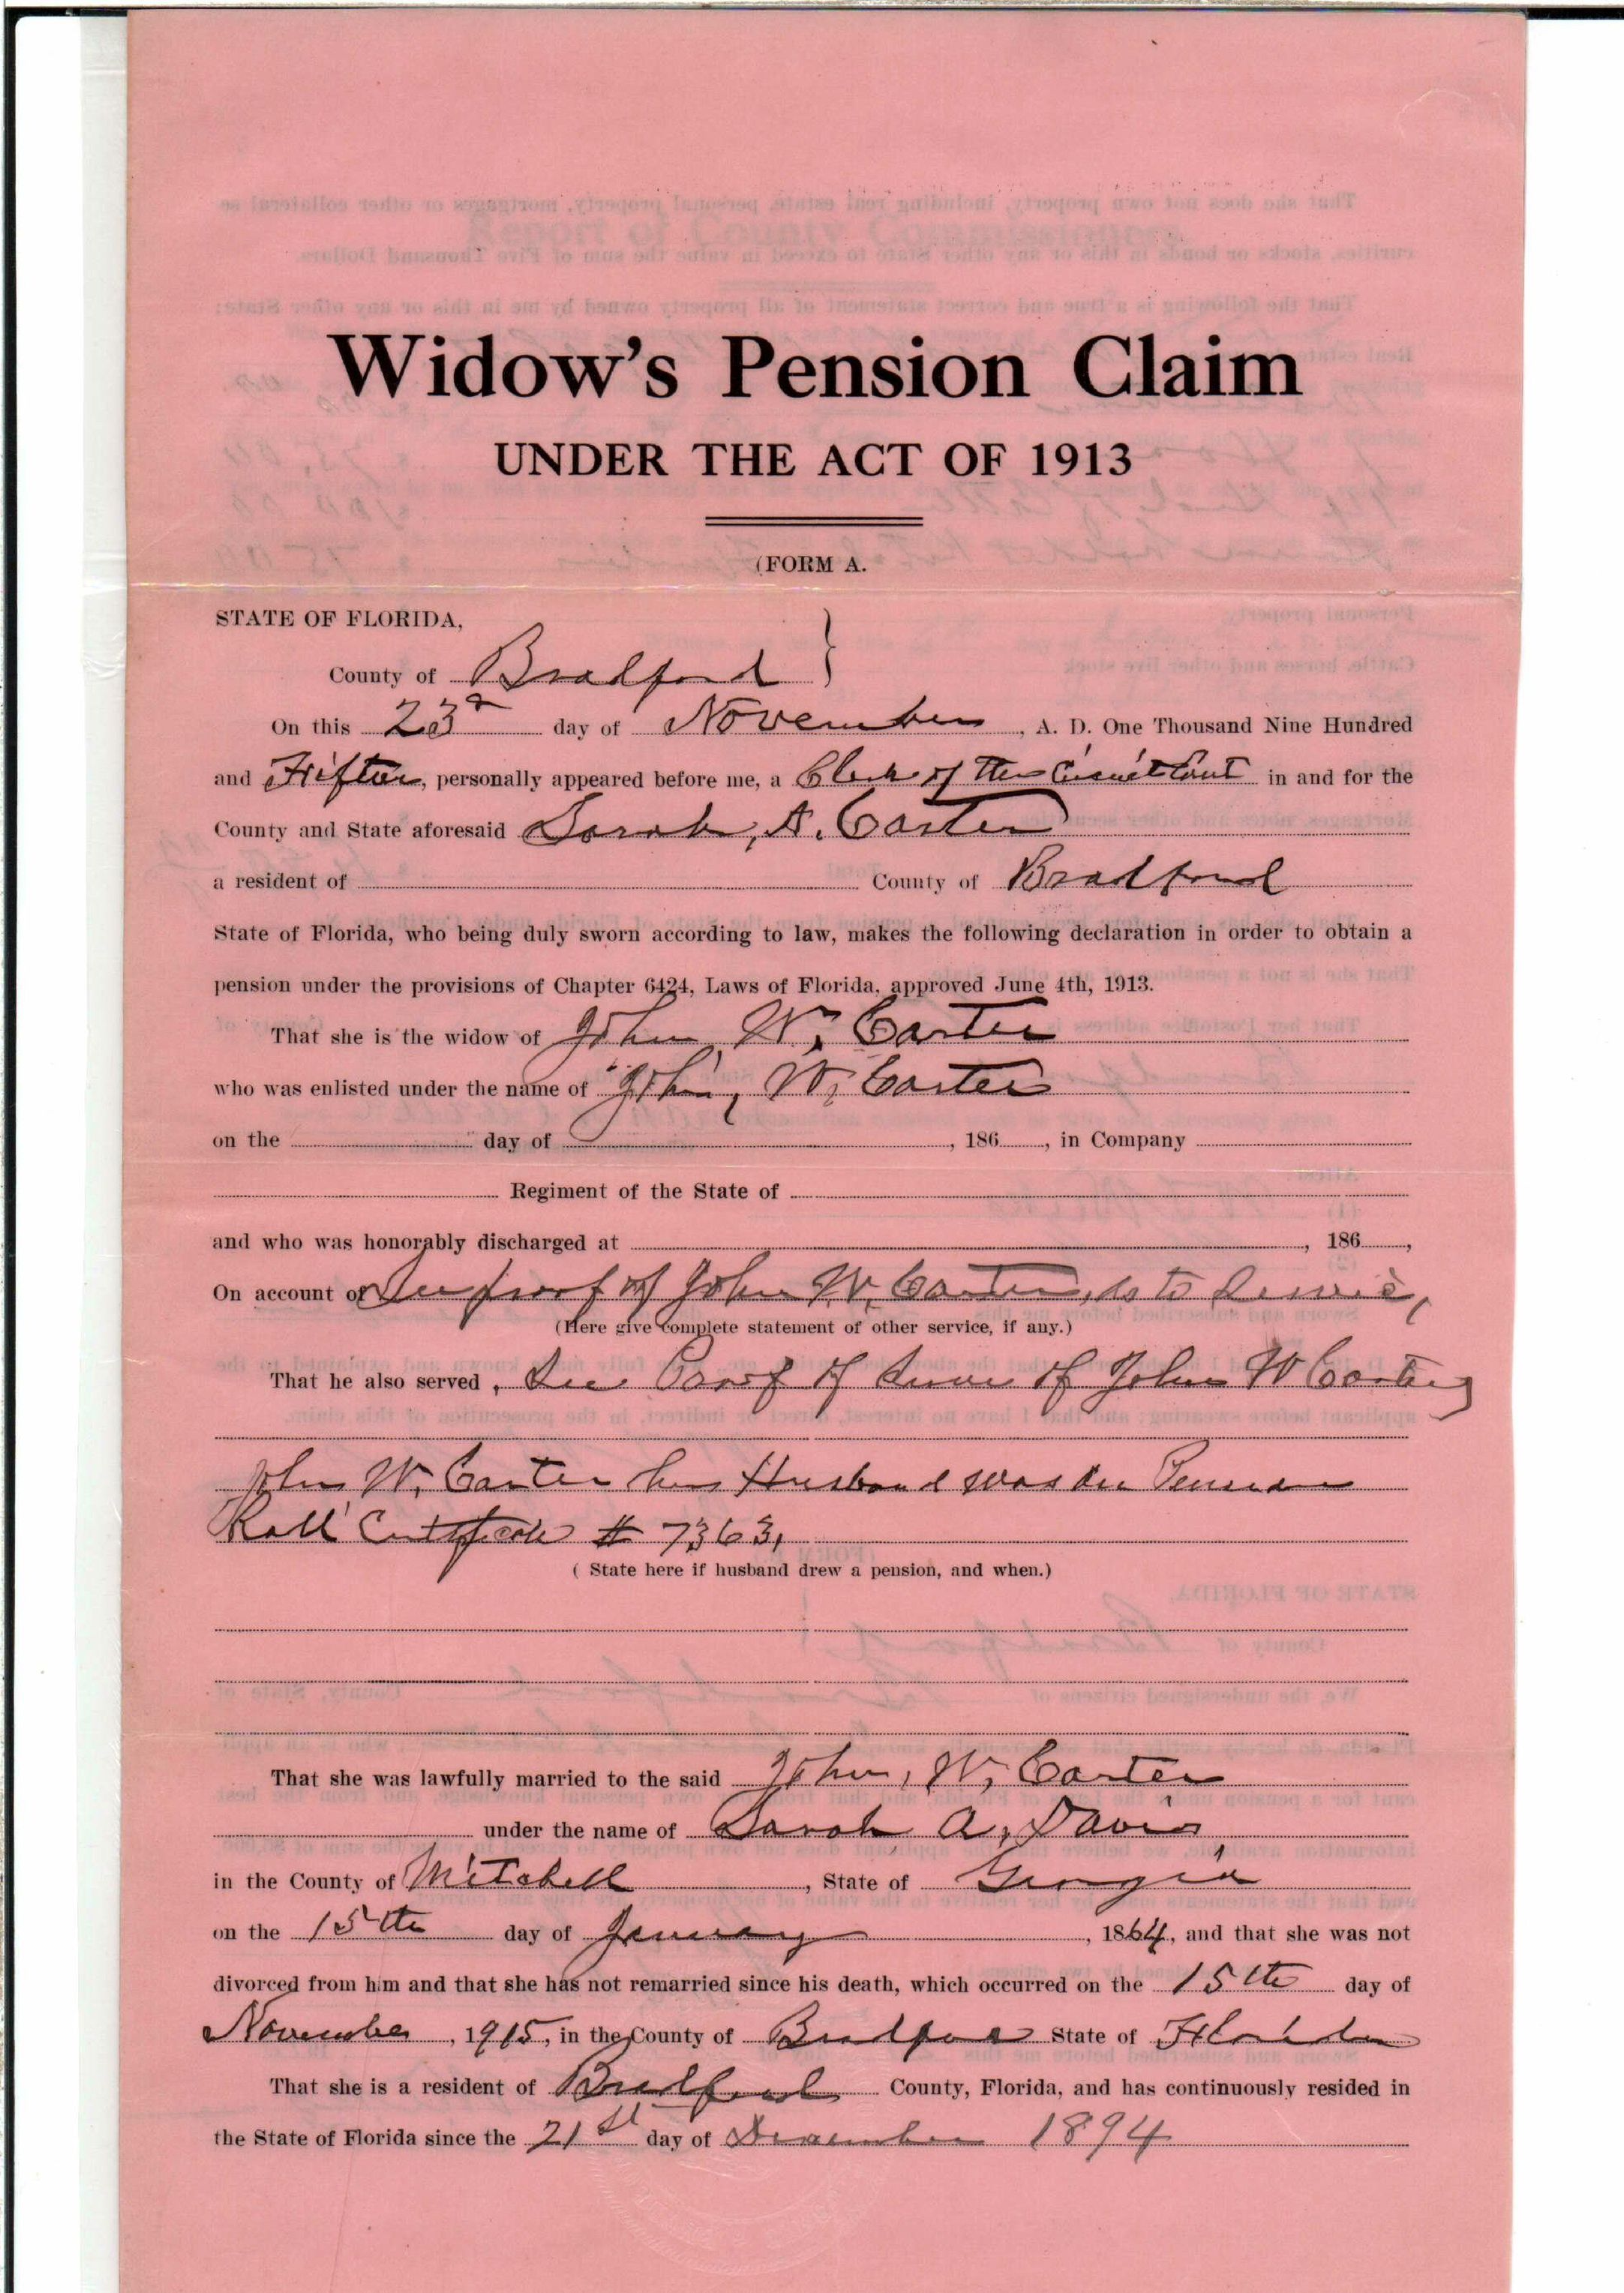 Widow's Pension Claim
UNDER THE ACT OF 1913
(FORM A.
STATE OF FLORIDA,
County of Bradford }
On this 23d day of November, A. D. One Thousand Nine Hundred
and Fifteen, personally appeared before me, a Clerk of the Circuit Court in and for the
County and State aforesaid Sarah, A. Carter
a resident of County of Bradford
State of Florida, who being duly sworn according to law, makes the following declaration in order to obtain a
pension under the provisions of Chapter 6424, Laws of Florida, approved June 4th, 1913.
That she is the widow of John, W, Carter
who was enlisted under the name of John, W, Carter
on the day of , 186 , in Company
Regiment of the State of
and who was honorably discharged at , 186 ,
On account of See proof of John W. Carter, as to Service,
(Here give complete statement of other service, if any.)
That he also served, See Proof of Service of John W Carter,
John W. Carter her Husband was on Pension
Roll Certificate # 7363,
( State here if husband drew a pension, and when.)
That she was lawfully married to the said John, W, Carter
under the name of Sarah A, Davis
in the County of Mitchell, State of Georgia
on the 15th day of January, 1864, and that she was not
divorced from him and that she has not remarried since his death, which occurred on the 15th day of
November, 1915, in the County of Bradford State of Florida
That she is a resident of Bradford County, Florida, and has continuously resided in
the State of Florida since the 21st day of December 1894